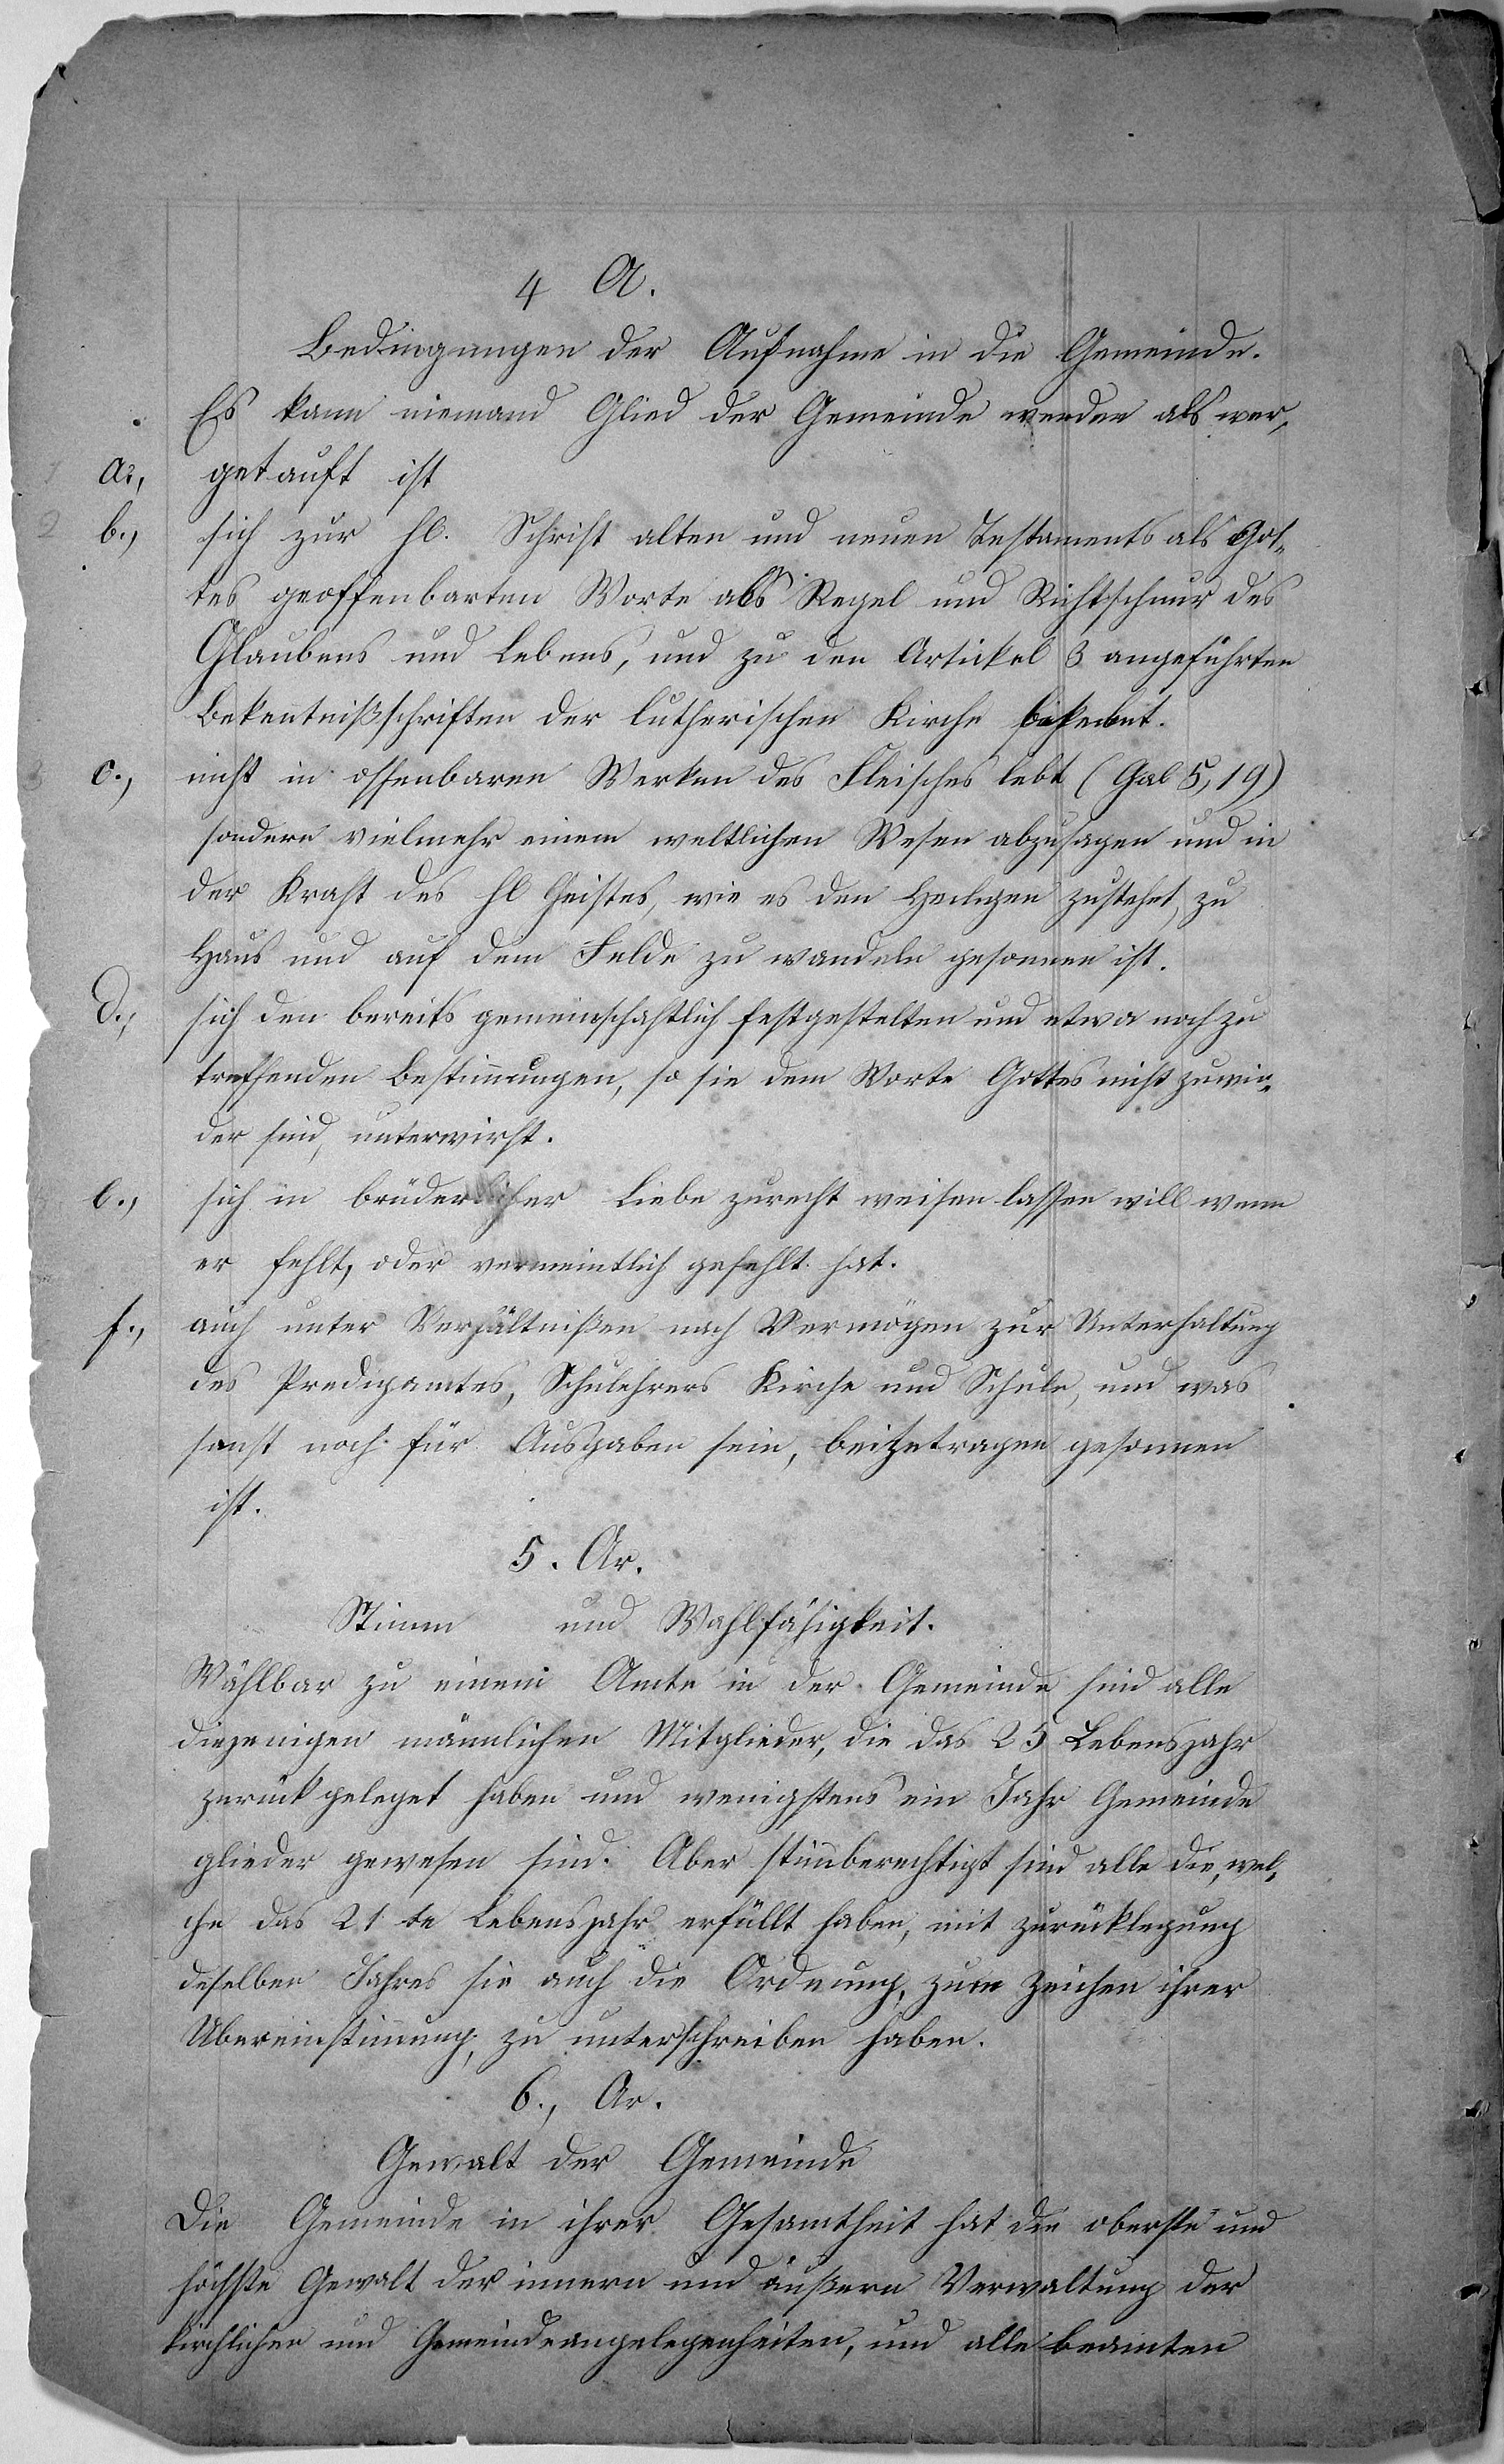 4 A.
Bedingungen der Aufnahme in die Gemeinde.
Es kann niemand Glied der Gemeinde werden als wer,
1 a., getauft ist
2 b., sich zur hl. Schrift alten und neuen Testaments als Got-
tes geoffenbarten Worte als Regel und Richtschnur des
Glaubens und Lebens, und zu den Artickel 3 angeführten
Bekentnißschriften der lutherischen Kirche bekennt.
3 c., nicht in offenbaren Werken des Fleisches lebt (Gal 5, 19)
sondern vielmehr einem weltlichen Wesen abzusagen und in
der Kraft des hl Geistes, wie es den Heiligen zustehet, zu
Haus und auf dem Felde zu wandeln gesonnen ist.
d., sich den bereits gemeinschaftlich festgestelten und etwa noch zu
treffenden Bestimungen, so sie dem Worte Gottes nicht zuwie-
der sind, unterwirft.
e., sich in brüderlicher Liebe zurecht weisen lassen will wenn
er fehlt, oder vermeintlich gefehlt hat.
f., auch unter Verhältnißen nach Vermögen zur Unterhaltung
des Predigamtes, Schulehrers Kirche und Schule, und was
sonst noch für Ausgaben sein, beizutragen gesonnen
ist.
5. Ar.
Stimm und Wahlfähigkeit.
Wählbar zu einem Amte in der Gemeinde sind alle
diejenigen männlichen Mitglieder, die das 25 Lebensjahr
zurückgeleget haben und wenigstens ein Jahr Gemeinde
glieder gewesen sind. Aber stimberechtigt sind alle die, wel-
che das 21 te Lebensjahr erfüllt haben, mit zurücklegung
deselben Jahres sie auch die Ordnung, zum Zeichen ihrer
Ubereinstimung, zu unterschreiben haben.
6., Ar.
Gewalt der Gemeinde
Die Gemeinde in ihrer Gesamtheit hat die oberste und
höchste Gewalt der innern und äußern Verwaltung der
kirchlichen und Gemeindeangelegenheiten, und alle beamten